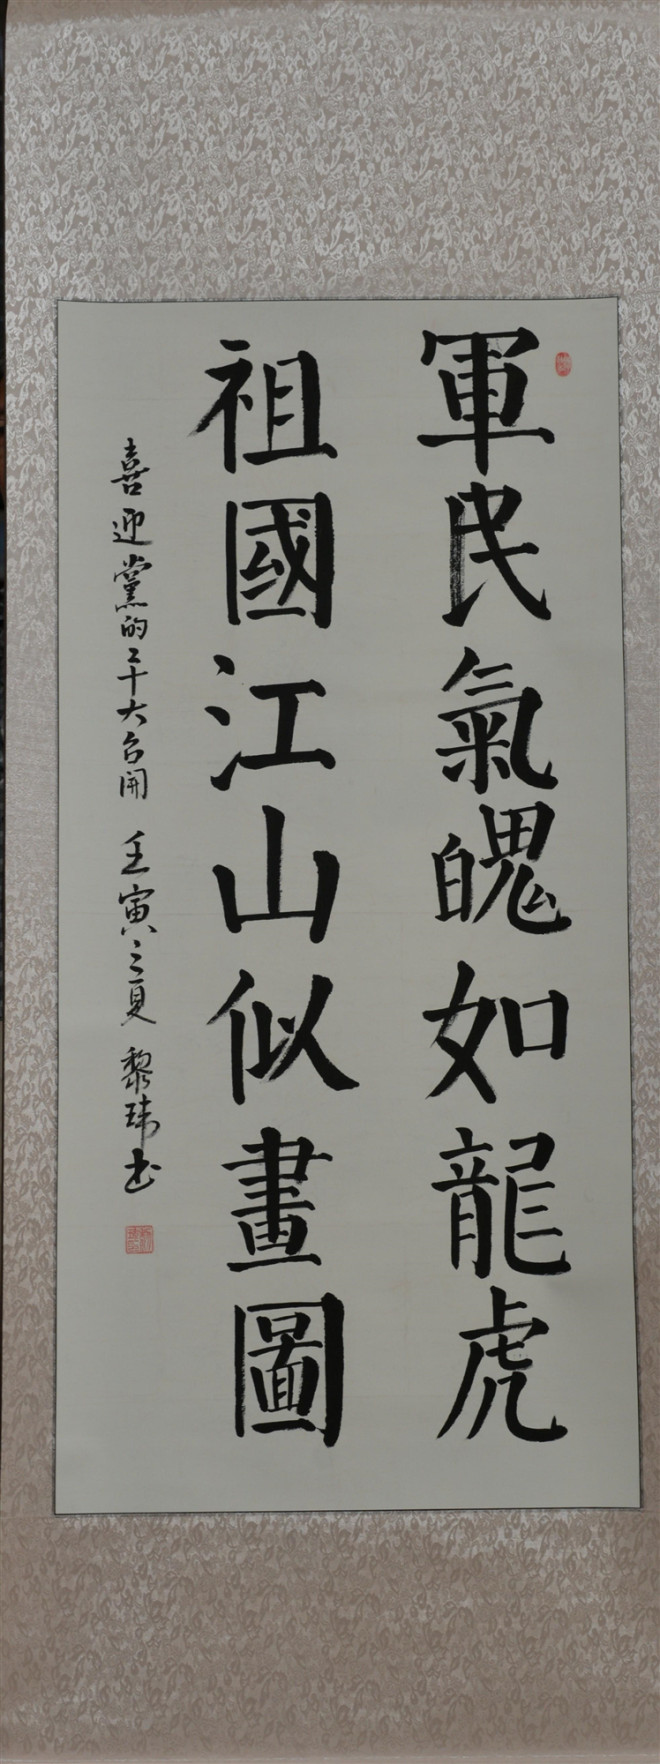 軍民氣魄如龍虎
祖國江山似畫圖
喜迎黨的二十大召開 壬寅之夏 黎瑋书